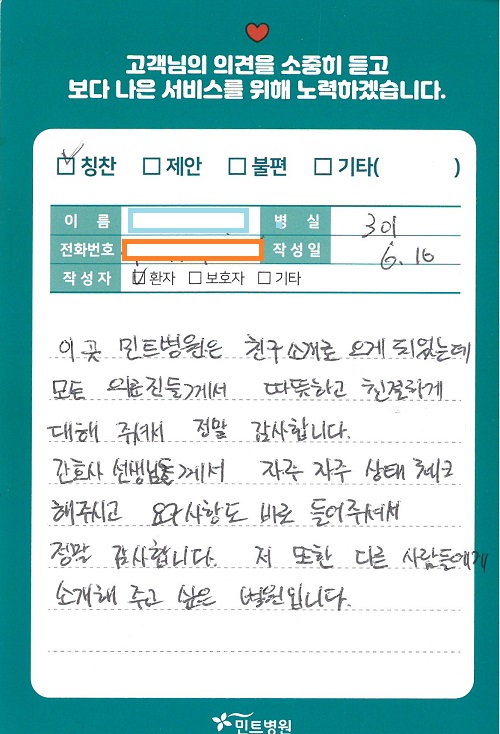 고객님의 의견을 소중히 듣고
보다 나은 서비스를 위해 노력하겠습니다.
칭찬 제안 불편 기타( )
이 름 병 실 301
전화번호 작 성 일 6. 16
작 성 자 환자 보호자 기타
이 곳 민트병원은 친구 소개로 오게 되었는데
모든 의료진들께서 따뜻하고 친절하게
대해 주셔서 정말 감사합니다.
간호사 선생님들께서 자주 자주 상태 체크
해주시고 요구사항도 바로 들어주셔서
정말 감사합니다. 저 또한 다른 사람들에게
소개해 주고 싶은 병원입니다.
민트병원